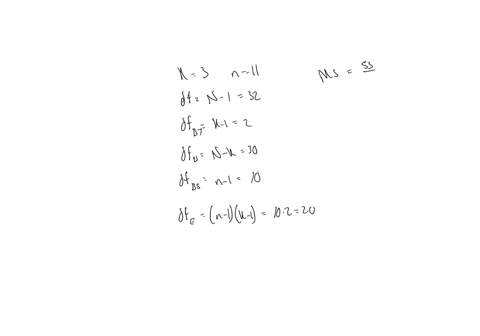 K = 3 n = 11
MS = SS
df = N-1 = 32
df_BT = K-1 = 2
df_W = N-K = 30
df_BS = n-1 = 10
df_E = (n-1)(K-1) = 10·2 = 20